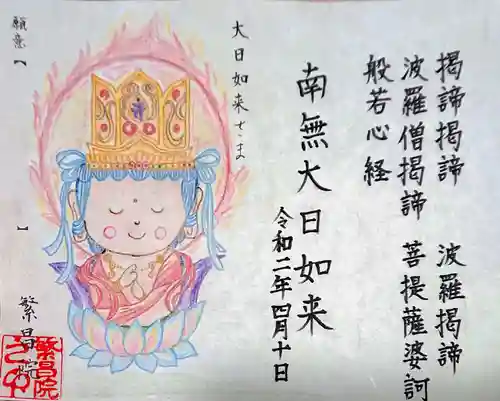 揭諦揭諦　波羅揭諦
波羅僧揭諦　菩提薩婆訶
般若心経
南無大日如来
令和二年四月十日
大日如来さま
願意【　】
繁昌院
繁昌院